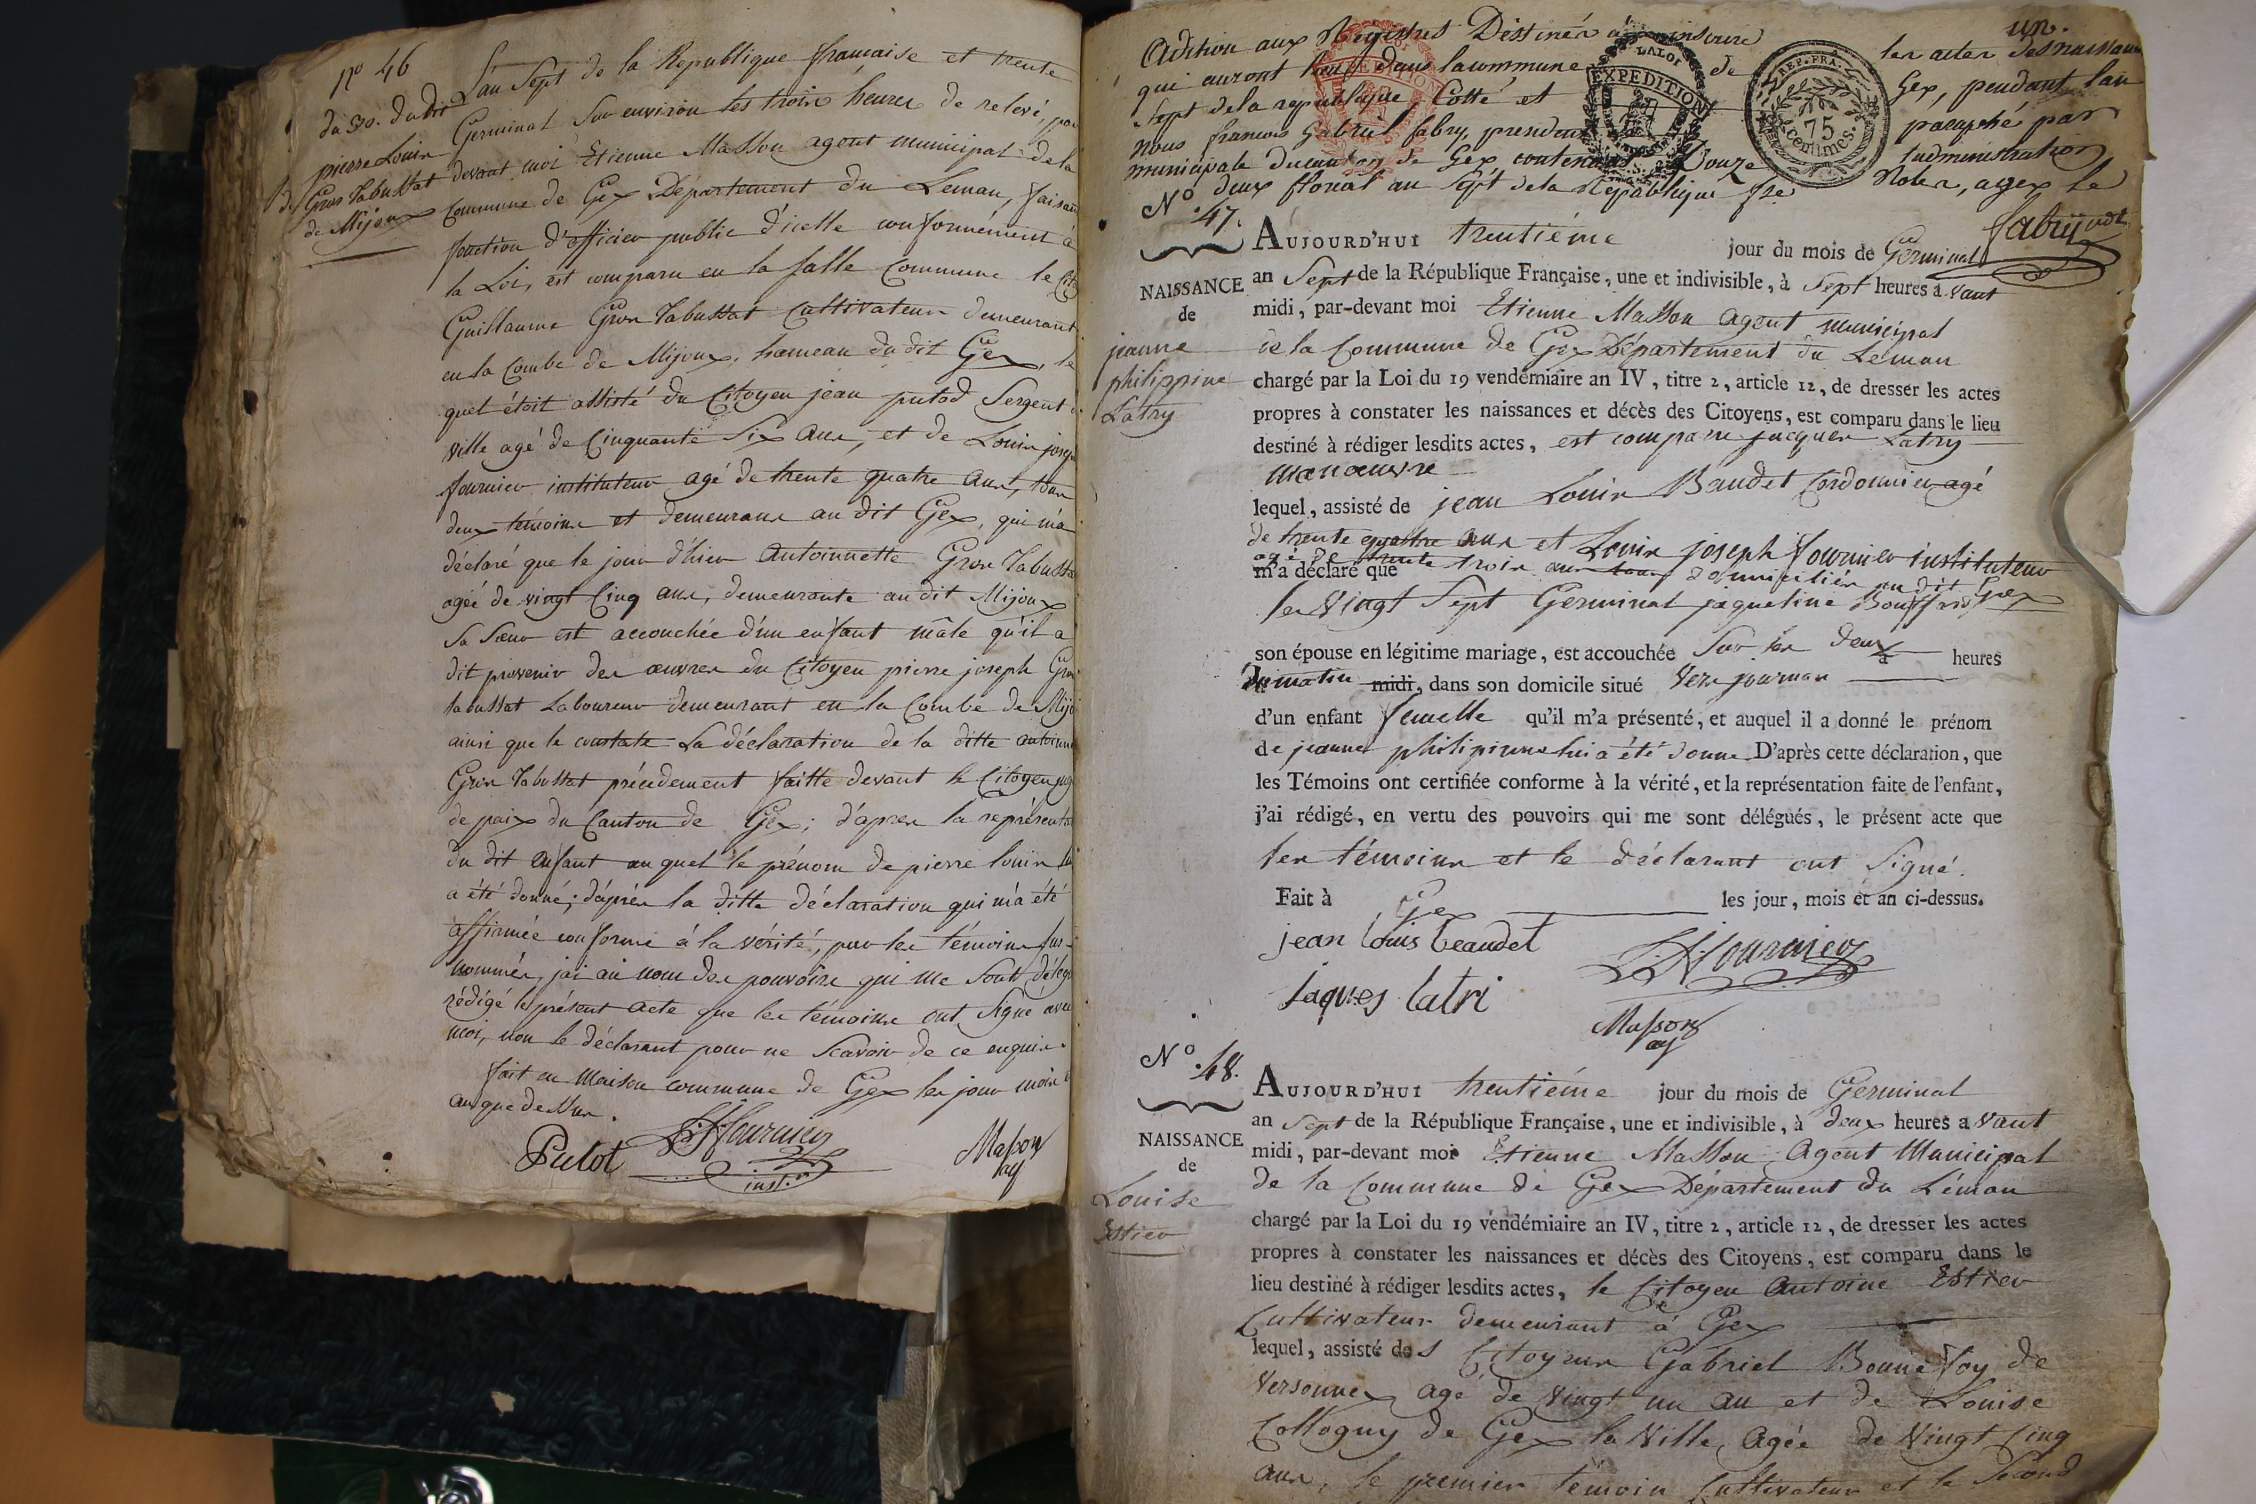 nº 46
du 30. du dit
pierre Louis
de Gros Tabussat
de Mijoux
L'an Sept de la Republique francaise et trente
Germinal Sur environ les trois heures de relevé, par
devant moi Etienne Masson agent municipal de la
Commune de Gex Departement du Leman, faisant
fonction d'officier public d'icelle conformément à
la Loi, est comparu en la salle Commune le Cit
Guillaume Gros Tabussat Cultivateur demeurant
en la Combe de Mijoux, hameau du dit Gex, le
quel étoit assisté du Citoyen jean putod Sergent de
ville agé de Cinquante Six ans, et de Louis joseph
fournier instituteur agé de trente quatre ans, tous
deux témoins et demeurans au dit Gex, qui m'a
déclaré que le jour d'hier Antoinnette Gros Tabussat
agée de vingt Cinq ans, demeurante au dit Mijoux
Sa Sœur est accouchée d'un enfant mâle qu'il a
dit provenir des œuvres du Citoyen pierre joseph Gros
tabussat Laboureur demeurant en la Combe de Mijo
ainsi que le constate La déclaration de la ditte antoinne
Gros Tabussat précedement faitte devant le Citoyen juge
de paix du Canton de Gex; d'après la représenta
du dit enfant auquel le prénom de pierre louis lui
a été donné; d'après la ditte déclaration qui m'a été
affirmée conforme à la vérité, par les témoins sus-
nommés, j'ai au nom des pouvoirs qui me sont délég
rédigé le présent acte que les témoins ont Signé avec
moi, non le déclarant pour ne Scavoir de ce enquis.
fait en Maison commune de Gex les jour mois et
an que dessus.
Putot
L: J: fournier
inst.r
Masson
ag
un.
Adition aux Registres Destinés à inscrire les actes des naissances
qui auront lieu dans la commune de Gex, pendant l'an
Sept de la republique, Cotté et paraphé par
Nous francois Gabriel fabry, president l'administration
municipale du canton de Gex contenant Douze Roles, a gex le
deux floréal an Sept de la République fse
fabry pdt
LALOI
EXPEDITION
REP. FRA.
75
centimes.
Nº 47.
NAISSANCE
de
jeanne
philippine
Latry
AUJOURD'HUI trentiéme jour du mois de Germinal
an Sept de la République Française, une et indivisible, à Sept heures avant
midi, par-devant moi Etienne Masson agent municipal
de la Commune de Gex Département du Leman
chargé par la Loi du 19 vendémiaire an IV, titre 2, article 12, de dresser les actes
propres à constater les naissances et décès des Citoyens, est comparu dans le lieu
destiné à rédiger lesdits actes, est comparu jacques Latry
manœuvre
lequel, assisté de jean Louis Baudet Cordonnier agé
de trente quattre ans et Louis joseph fournier instituteur
agé de trente trois ans tous domiciliés au dit Gex
m'a déclaré que
le Vingt Sept Germinal jaqueline Bouffris
son épouse en légitime mariage, est accouchée Sur les deux à heures
du matin midi, dans son domicile situé Vers journan
d'un enfant femelle qu'il m'a présenté, et auquel il a donné le prénom
de jeanne philipinne lui a été donné D'après cette déclaration, que
les Témoins ont certifiée conforme à la vérité, et la représentation faite de l'enfant,
j'ai rédigé, en vertu des pouvoirs qui me sont délégués, le présent acte que
les témoins et le déclarant ont Signé.
Fait à Gex les jour, mois et an ci-dessus.
jean louis beaudet
L: J: fournier
jaques latri
Masson
ag
Nº 48.
NAISSANCE
de
Louise
Estier
AUJOURD'HUI trentiéme jour du mois de Germinal
an Sept de la République Française, une et indivisible, à deux heures avant
midi, par-devant moi Etienne Masson Agent Municipal
de la Commune de Gex Département du Léman
chargé par la Loi du 19 vendémiaire an IV, titre 2, article 12, de dresser les actes
propres à constater les naissances et décès des Citoyens, est comparu dans le
lieu destiné à rédiger lesdits actes, le Citoyen Antoine Estier
Cultivateur demeurant à Gex
lequel, assisté des Citoyens Gabriel Bonnefoy de
Versonnex agé de vingt un an et de Louise
Collogny de Gex la Ville Agée de Vingt Cinq
ans, le premier témoin Cultivateur et la Second